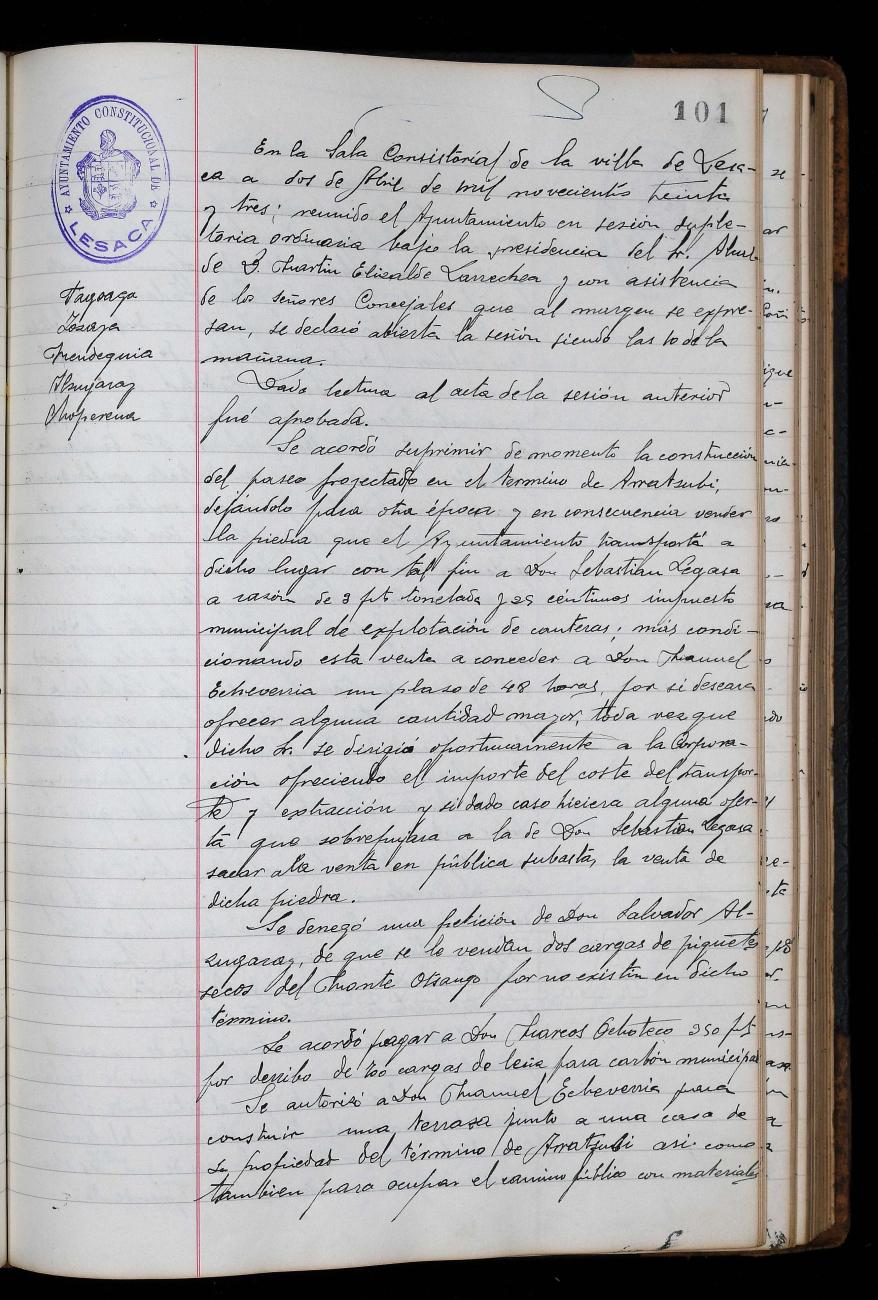 101
AYUNTAMIENTO CONSTITUCIONAL DE
LESACA
Taysago
Zozaya
Mendeguia
Almyaraz
Choperena
En la Sala Consistorial de la villa de Lesa-
ca a dos de Abril de mil novecientos treinta
y tres; reunido el Ayuntamiento en sesión suple-
toria ordinaria bajo la presidencia del Sr. Alcal-
de D. Martin Elizalde Larrechea y con asistencia
de los señores Concejales que al margen se expre-
san, se declaró abierta la sesión siendo las 10 de la
mañana.
Dada lectura al acta de la sesión anterior
fué aprobada.
Se acordó suprimir de momento la construcción
del paseo proyectado en el término de Arratzubi,
dejándolo para otra época y en consecuencia vender
la piedra que el Ayuntamiento transportá a
dicho lugar con tal fin a Don Sebastian Legasa
a razón de 3 pts tonelada y 25 céntimos impuesto
municipal de explotación de canteras; más condi-
cionando esta venta a conceder a Don Manuel
Echeverria un plazo de 48 horas, por si deseara
ofrecer alguna cantidad mayor, toda vez que
dicho Sr. se dirigió oportunamente a la Corpora-
ción ofreciendo el importe del coste del transpor-
te y extracción y si dado caso hiciera alguna ofer-
ta que sobrepujara a la de Don Sebastian Legasa
sacar a la venta en pública subasta, la venta de
dicha piedra.
Se denegó una petición de Don Salvador Al-
zugaray, de que se le vendan dos cargas de piquetes
secos del Monte Otsango por no existir en dicho
término.
Se acordó pagar a Don Marcos Ochoteco 350 pts
por derribo de 700 cargas de leña para carbón municipal
Se autorizó a Don Manuel Echeverria para
construir una terraza junto a una casa de
su propiedad del término de Arratzubi asi como
tambien para ocupar el camino público con materiales